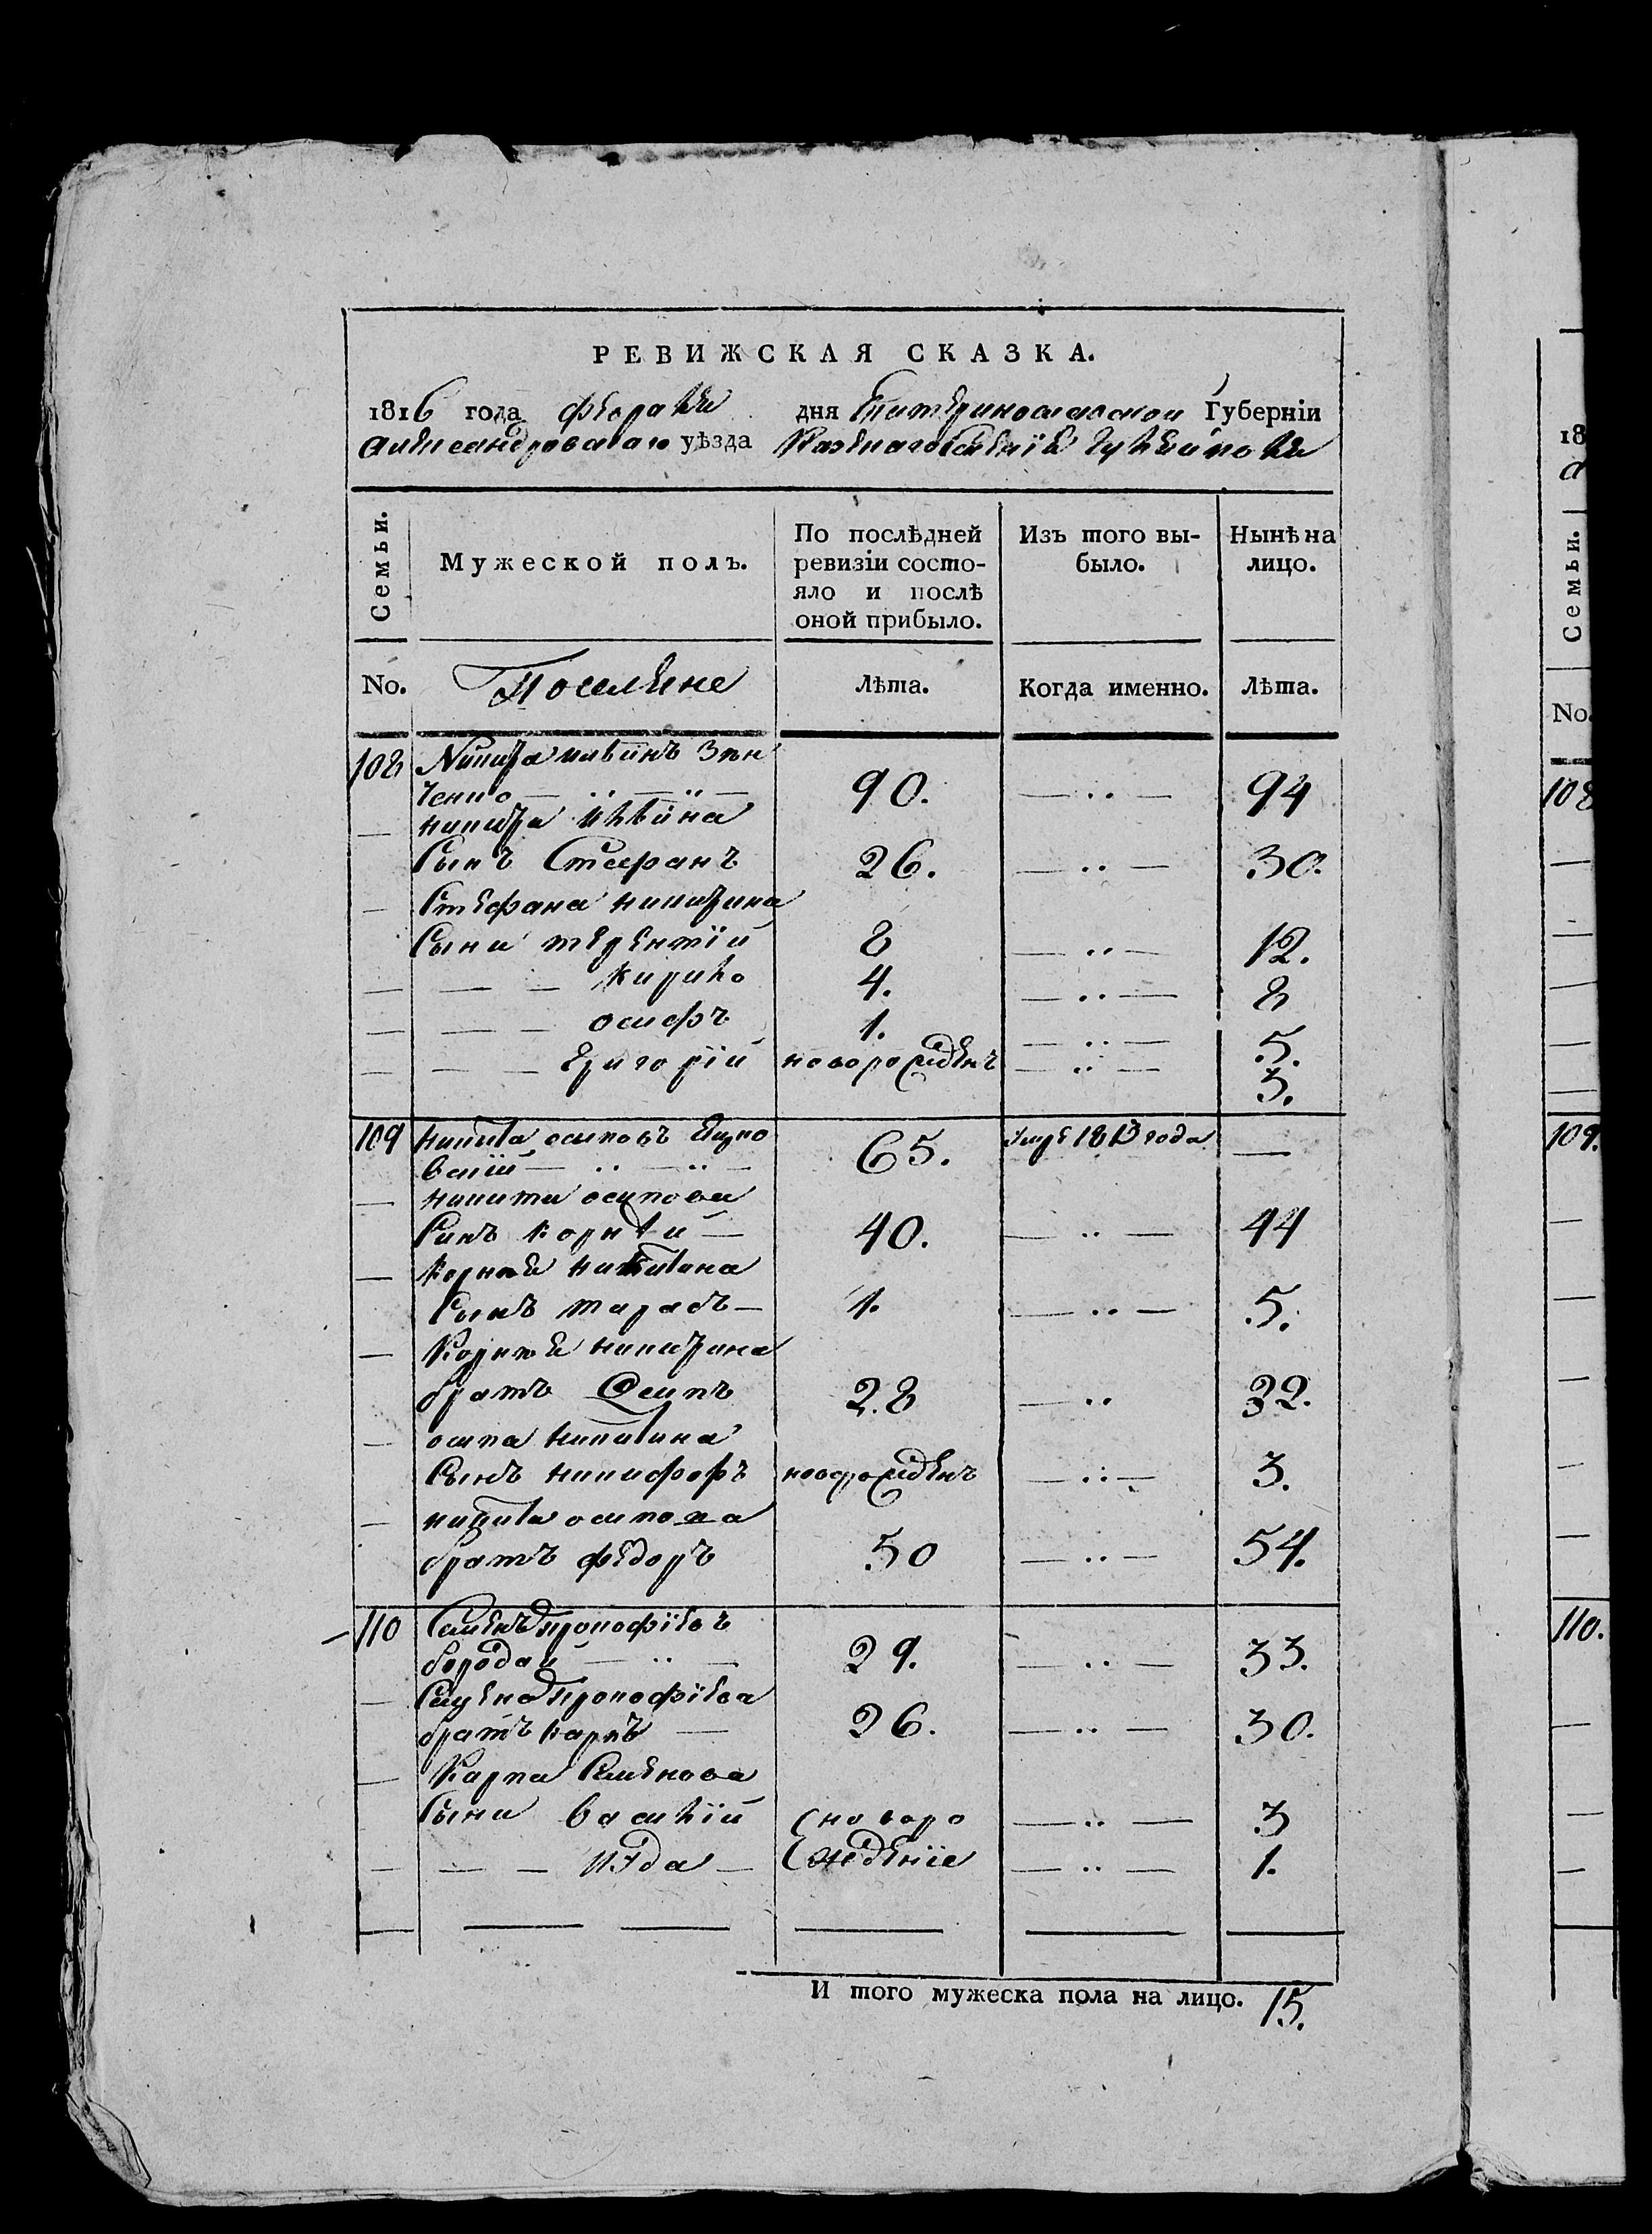 РЕВИЖСКАЯ СКАЗКА.
1816 года февраля дня Екатеринославской Губерніи
Александровскаго уѣзда Казеннаго Селенія Гуляйполя
Семьи.
Мужеской полъ.
По послѣдней ревизіи состо-
яло и послѣ
оной прибыло.
Изъ того вы-
было.
Нынѣ на
лицо.
No. Поселяне Лѣта. Когда именно. Лѣта.
108 Никита
ченко — 90. — 94
— никиты
Сынъ Стефанъ 26. — 30.
— Стефана никитина
Сыни терентій 8 — 12.
— — — кирило 4. — 8
— — — осифъ 1. — 5.
— — — григорій новорожденъ — 3.
109 никита осиповъ
вскій — 65. умре 1813 года —
— никиты осипова
Синъ корнѣй — 40. — 44
— корнѣя никитина
Сынъ тарасъ — 1. — 5.
— Корнѣя никитина
братъ Осипъ 28 — 32.
— осипа никитина
Сынъ никифоръ новорожденъ — 3.
— никиты осипова
братъ федоръ 50 — 54.
110 Семенъ прокофіевъ
бородай — 29. — 33.
— Семена прокофіева
братъ карпъ — 26. — 30.
— Карпа Семенова
Сыни василій новоро 3
— — — — жденіе — 1.
И того мужеска пола на лицо. 15.
18
Семьи.
No.
108
109.
110.